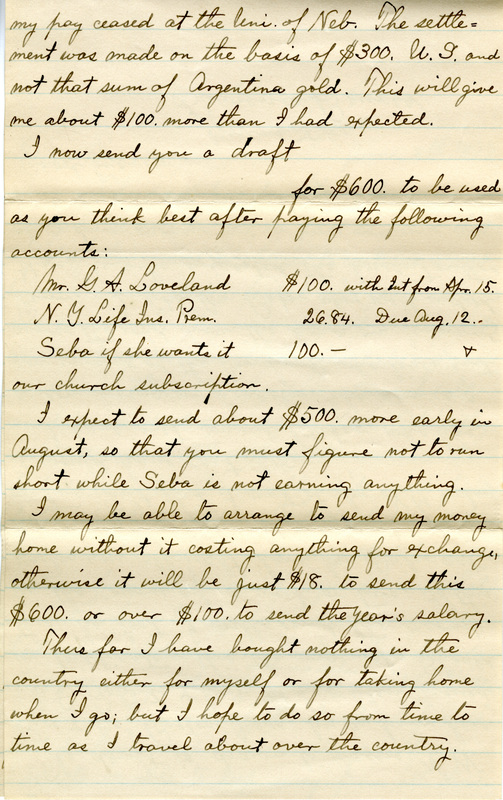 my pay ceased at the Uni. of Neb. The settle=
ment was made on the basis of $300. U. S. and
not that sum of Argentina gold. This will give
me about $100. more than I had expected.
I now send you a draft
for $600. to be used
as you think best after paying the following
accounts:
Mr. G. A. Loveland $100. with Int from Apr. 15.
N. Y. Life Ins. Prem. 26.84. Due Aug. 12..
Seba if she wants it 100. — &
our church subscription.
I expect to send about $500. more early in
August, so that you must figure not to run
short while Seba is not earning anything.
I may be able to arrange to send my money
home without it costing anything for exchange,
otherwise it will be just $18. to send this
$600. or over $100. to send the year's salary.
Thus far I have bought nothing in the
country either for myself or for taking home
when I go; but I hope to do so from time to
time as I travel about over the country.